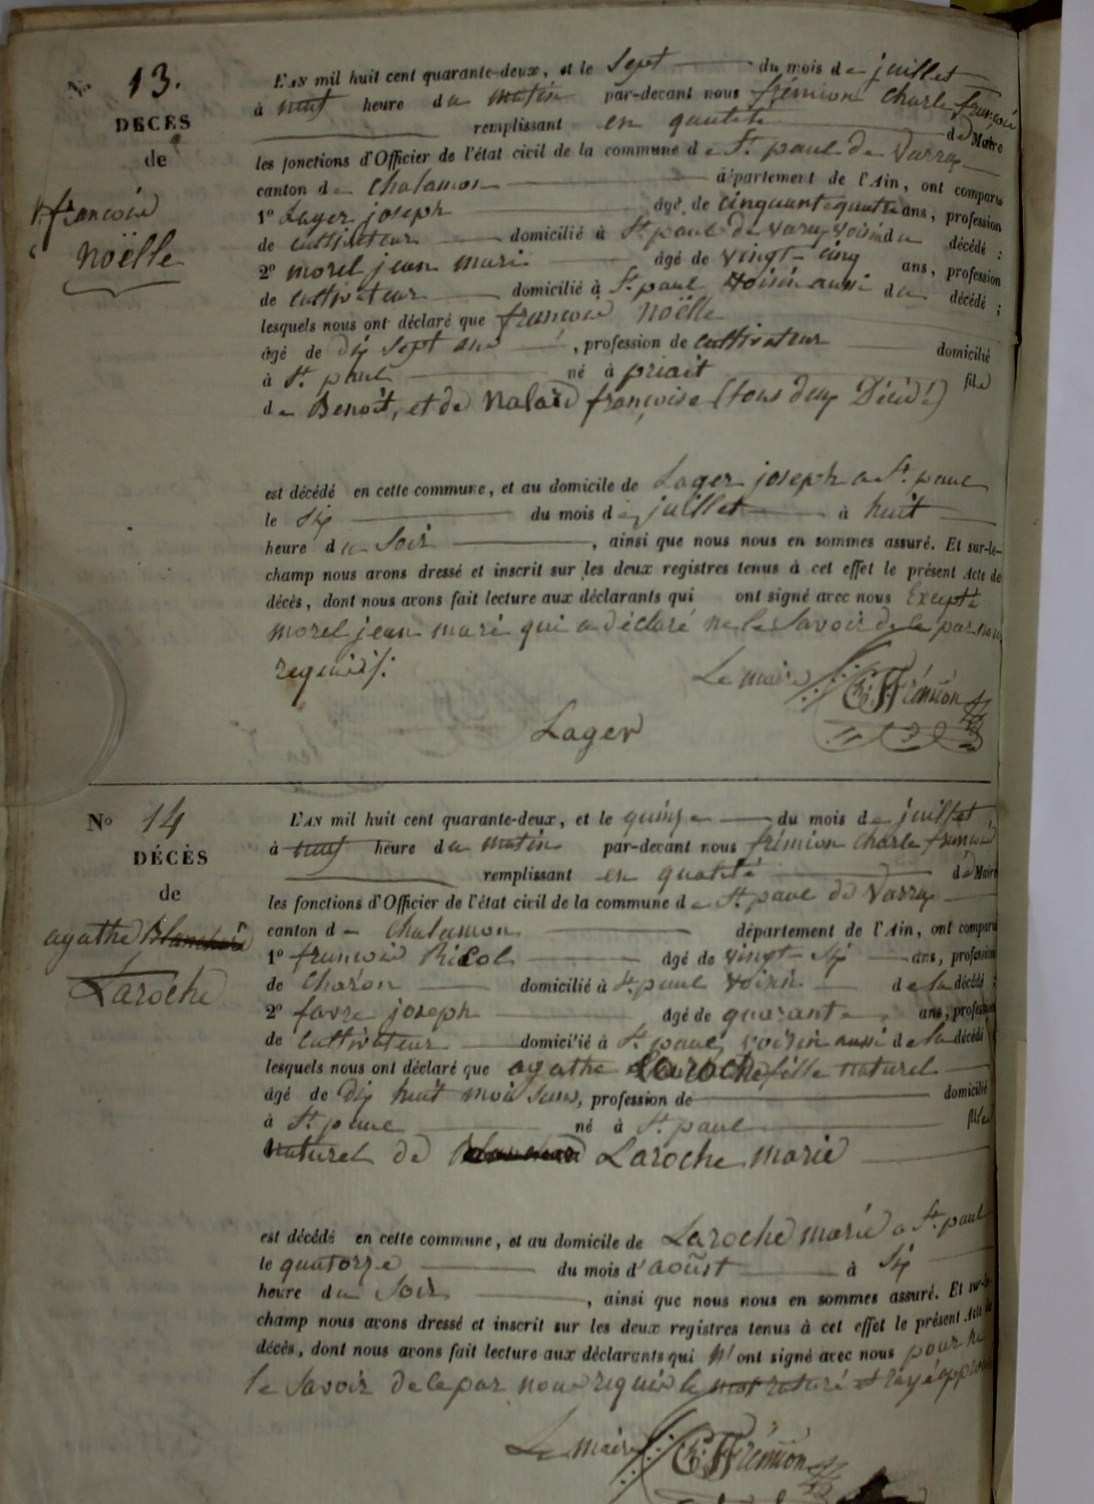 N° 13.
DÉCÈS
de
françois
Noëlle
L'AN mil huit cent quarante-deux, et le Sept du mois de juillet
à neuf heure du matin par-devant nous frémion Charle françois
remplissant en qualité de Maire
les fonctions d'Officier de l'état civil de la commune de St. paul de Varax
canton de Chalamon département de l'Ain, ont comparu
1° Lager joseph âgé de cinquante quatre ans, profession
de cultivateur domicilié à St paul de varax voisin du décédé :
2° morel jean marie âgé de vingt-cinq ans, profession
de cultivateur domicilié à St. paul voisin aussi du décédé ;
lesquels nous ont déclaré que françois Noëlle
âgé de dix sept ans, profession de cultivateur domicilié
à St. paul né à priait fils
de Benoît, et de Nalais françoise (tous deux Décédé)
est décédé en cette commune, et au domicile de Lager joseph a St. paul
le Six du mois de juillet à huit
heure du Soir, ainsi que nous nous en sommes assuré. Et sur-le-
champ nous avons dressé et inscrit sur les deux registres tenus à cet effet le présent Acte de
décès, dont nous avons fait lecture aux déclarants qui ont signé avec nous Excepté
morel jean marie qui a déclaré ne le Savoir de ce par nous
requis /.
Le maire Ch. Frémion
Lager
N° 14
DÉCÈS
de
agathe
Laroche
L'AN mil huit cent quarante-deux, et le quinze du mois de juillet
à neuf heure du matin par-devant nous frémion Charle françois
remplissant en qualité de Maire
les fonctions d'Officier de l'état civil de la commune de St. paul de Varax
canton de Chalamon département de l'Ain, ont comparu
1° françois Ricol âgé de vingt-Six ans, profession
de Charon domicilié à St. paul voisin de la décédé ;
2° favre joseph âgé de quarante ans, profession
de cultivateur domicilié à St. paul, voisin aussi de la décédé
lesquels nous ont déclaré que agathe Laroche fille naturel
âgé de dix huit mois, profession de domicilié
à St. paul né à St. paul fille
naturel de Laroche marie
est décédé en cette commune, et au domicile de Laroche marie a St. paul
le quatorze du mois d'août à Six
heure du Soir, ainsi que nous nous en sommes assuré. Et sur-le-
champ nous avons dressé et inscrit sur les deux registres tenus à cet effet le présent Acte de
décès, dont nous avons fait lecture aux déclarants qui n'ont signé avec nous pour ne
le Savoir de ce par nous requis le mot raturé et rayé
Le maire Ch. Frémion